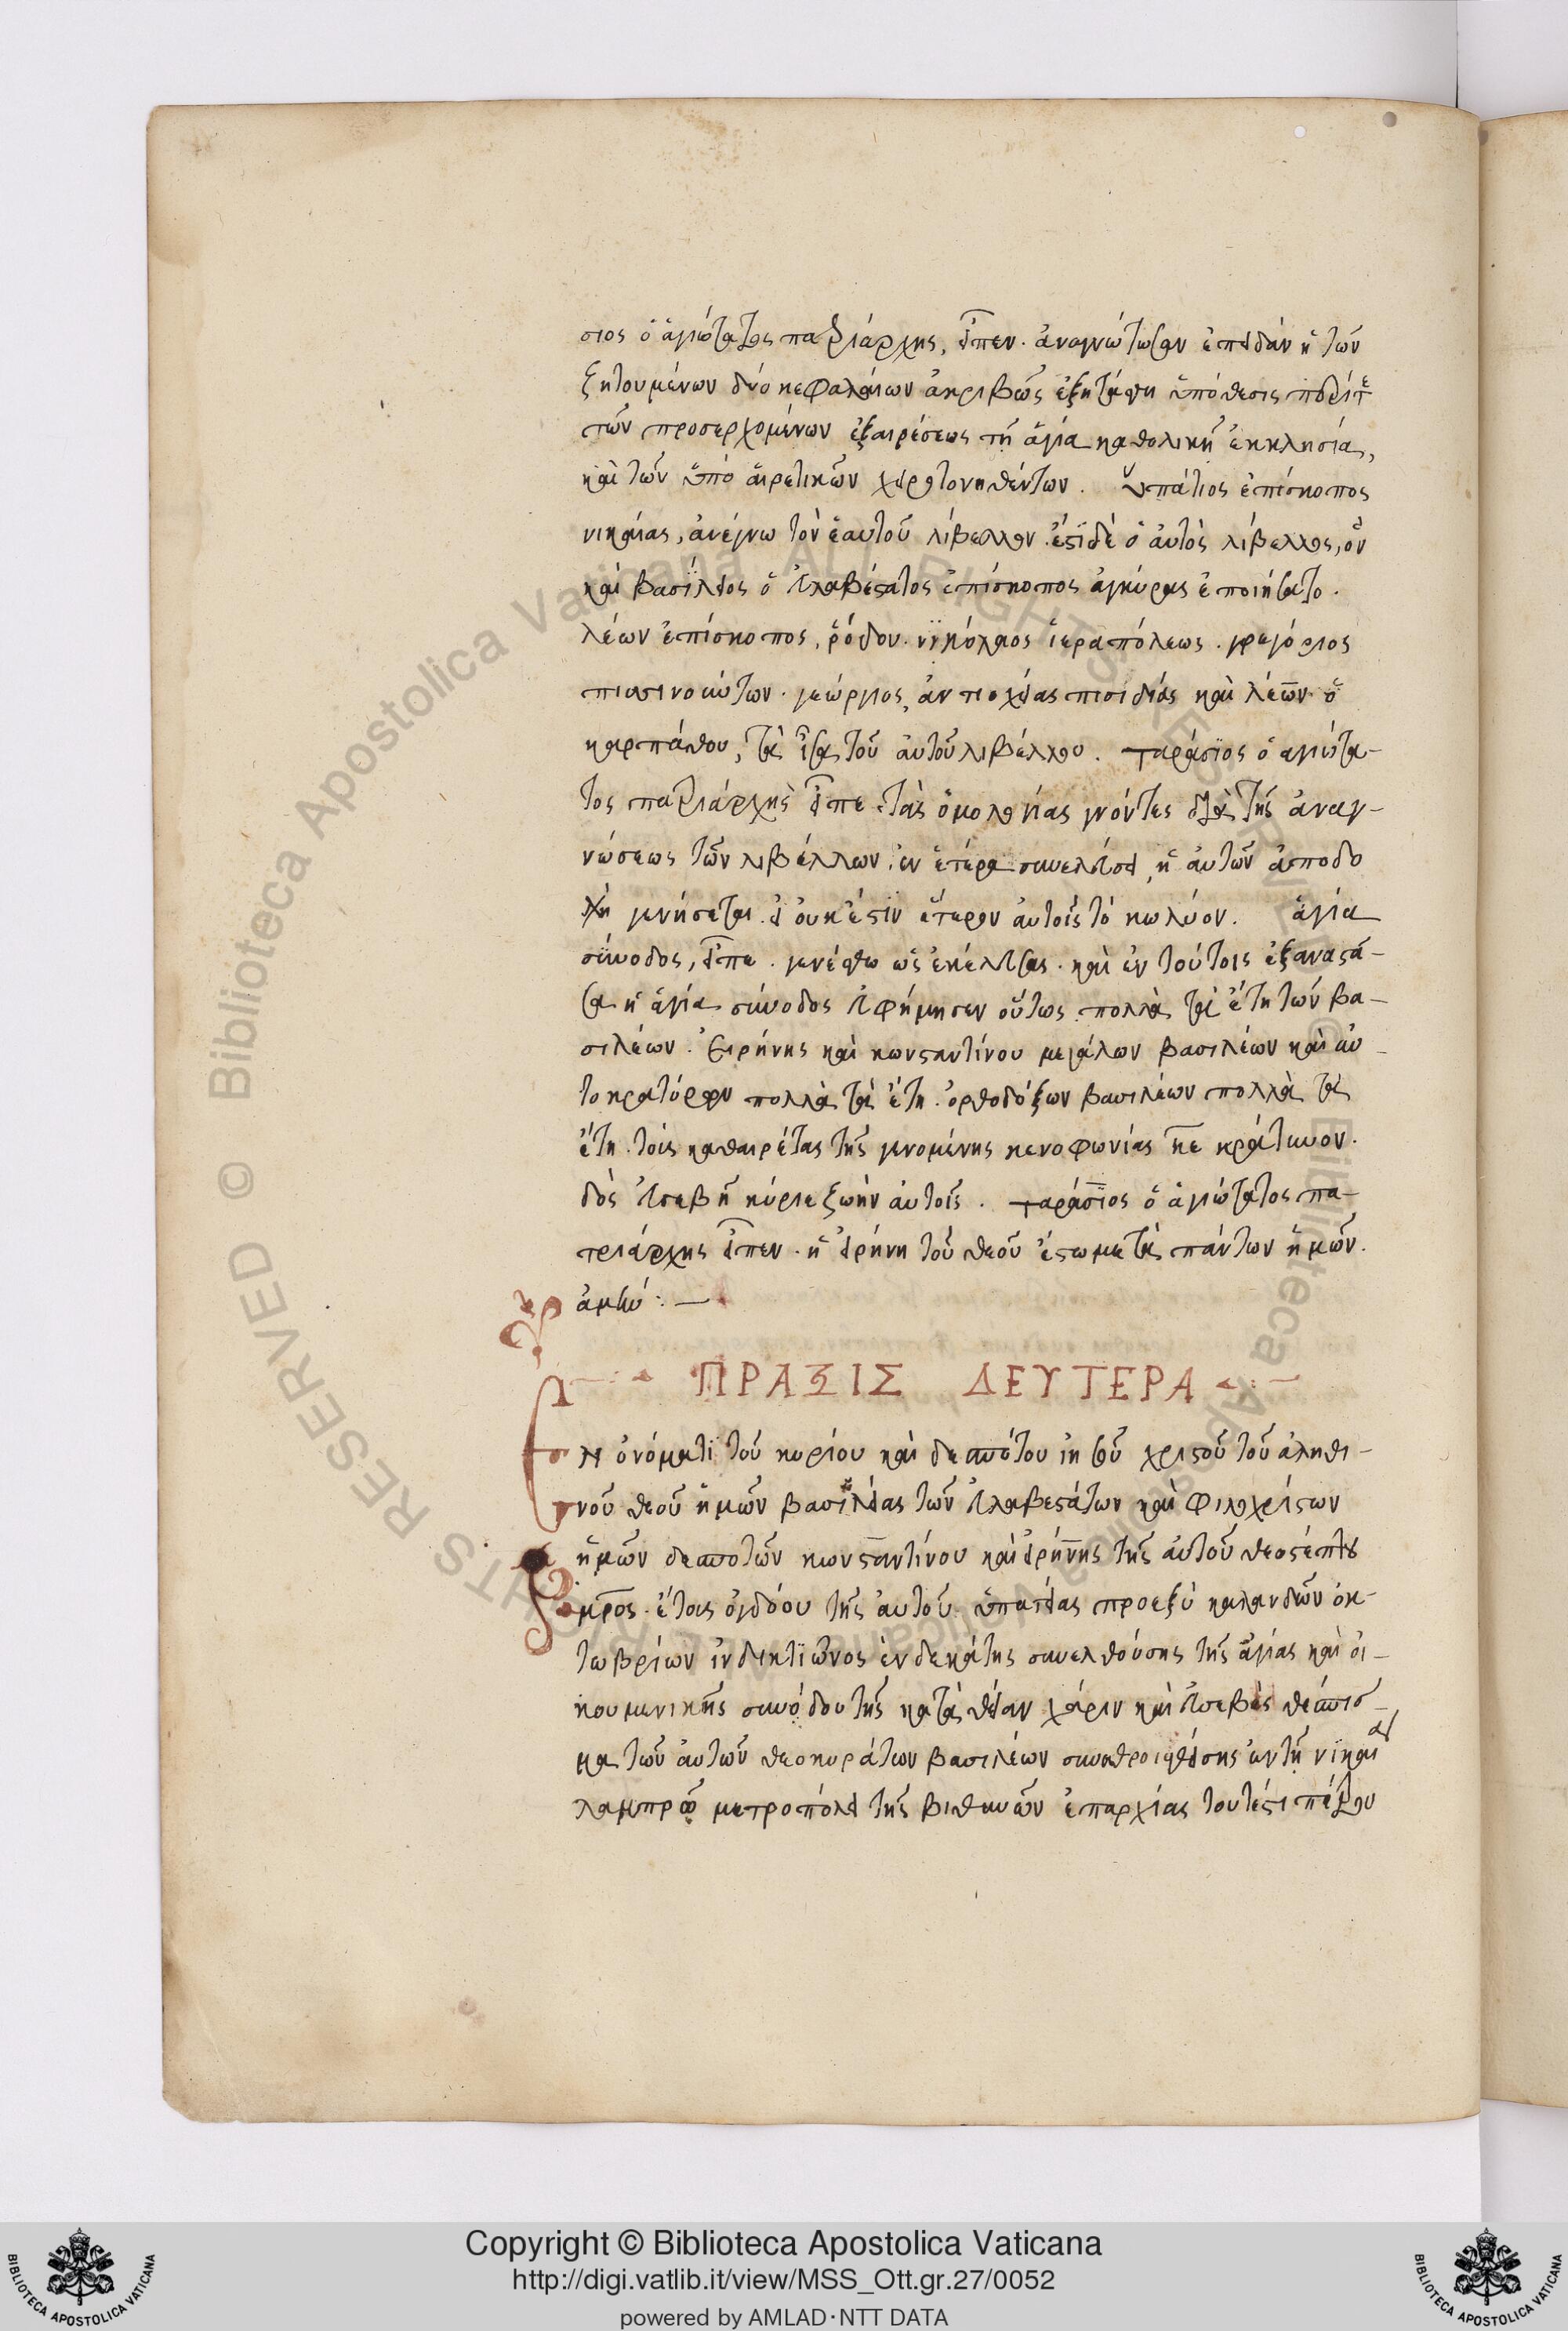 σιος ὁ ἁγιώτατος πατριάρχης, εἶπεν. ἀναγνώτωσαν ἐπειδὰν ἡ τῶν
ζητουμένων δύο κεφαλαίων ἀκριβῶς ἐξητάσθη ὑπόθεσις
τῶν προσερχομένων ἐξ αἱρέσεως τῇ ἁγία καθολικῆ ἐκκλησία,
καὶ τῶν ὑπὸ αἱρετικῶν χειροτονηθέντων. ὑπάτιος ἐπίσκοπος
νικαίας, ἀνέγνω τὸν ἑαυτοῦ λίβελλον. ἔστι δὲ ὁ αὐτὸς λίβελλος, ὃν
καὶ βασίλειος ὁ εὐλαβέστατος ἐπίσκοπος ἀγκύρας ἐποιήσατο.
λέων ἐπίσκοπος, ῥόδου. νικόλαος ἱεραπόλεως. γρηγόριος
πισινούντων. γεώργιος, ἀντιοχείας πισιδίας καὶ λέων ὁ
καρπάθου, τὰ ἶσα τοῦ αὐτοῦ λιβέλλου. ταράσιος ὁ ἁγιώτα-
τος πατριάρχης εἶπε. τὰς ὁμολογίας γνόντες διὰ τῆς ἀναγ-
νώσεως τῶν λιβέλλων. ἐν ἑτέρα συνελεύσει, ἡ αὐτῶν ἀποδο
χὴ γενήσεται. εἰ οὐκ ἔστιν ἕτερον αὐτοῖς τὸ κωλύον. ἁγία
σύνοδος, εἶπε. γενέσθω ὡς ἐκέλευσας. καὶ ἐν τούτοις ἐξαναστᾶ-
σα ἡ ἁγία σύνοδος εὐφήμησεν οὕτως. πολλὰ τὰ ἔτη τῶν βα-
σιλέων. Εἰρήνης καὶ κωνσταντίνου μεγάλων βασιλέων καὶ αὐ-
τοκρατόρων πολλὰ τὰ ἔτη. ὀρθοδόξων βασιλέων πολλὰ τὰ
ἔτη. τοὺς καθαιρέτας τῆς γενομένης κενοφωνίας κε κράτυνον.
δὸς εὐσεβῆ κύριε ζωὴν αὐτοῖς. ταράσιος ὁ ἁγιώτατος πα-
τριάρχης εἶπεν. ἡ εἰρήνη τοῦ θεοῦ ἔστω μετὰ πάντων ἡμῶν.
ἀμήν:—
ΠΡΑΞΙΣ ΔΕΥΤΕΡΑ
Ἐν ὀνόματι τοῦ κυρίου καὶ δεσπότου ἰησοῦ χριστοῦ τοῦ ἀληθι-
νοῦ θεοῦ ἡμῶν βασιλείας τῶν εὐλαβεστάτων καὶ φιλοχρίστων
ἡμῶν δεσποτῶν κωνσταντίνου καὶ εἰρήνης τῆς αὐτοῦ θεοστέπτου
μρος. ἔτους ὀγδόου τῆς αὐτοῦ ὑπατείας προεξὺ καλανδῶν ὀκ-
τωβρίων ἰνδικτιῶνος ἑνδεκάτης συνελθούσης τῆς ἁγίας καὶ οἰ-
κουμενικῆς συνόδου τῆς κατὰ θείαν χάριν καὶ εὐσεβὲς θέσπισ-
μα τῶν αὐτῶν θεοκυράτων βασιλέων συναθροισθείσης ἐν τῇ νικαέ
λαμπρᾷ μετροπόλει τῆς βιθυνῶν ἐπαρχίας τουτέστι πέτρου
Copyright © Biblioteca Apostolica Vaticana
http://digi.vatlib.it/view/MSS_Ott.gr.27/0052
powered by AMLAD·NTT DATA